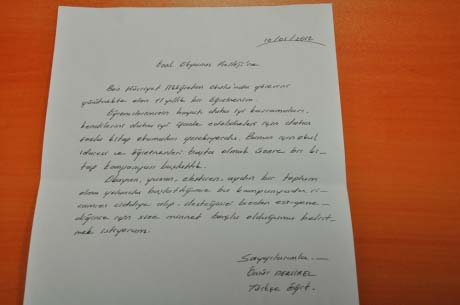 10/01/2012
Ben Hürriyet İlköğretim Okulu'nda görevini
yürütmekte olan 11 yıllık bir öğretmenim.
Öğrencilerimizin hayatı daha iyi kavramaları,
kendilerini daha iyi ifade edebilmeleri için daha
fazla kitap okumaları gerekiyordu. Bunun için okul
idaresi ve öğretmenleri başta olmak üzere bir ki-
tap kampanyası başlattık.
Okuyan, yazan, eleştiren, aydın bir toplum
olma yolunda başlattığımız bu kampanyada ri-
camızı ciddiye alıp, desteğinizi bizden esirgeme-
diğiniz için size minnet borçlu olduğumu belirt-
mek istiyorum.
Saygılarımla
Ömür
Türkçe Öğrt.